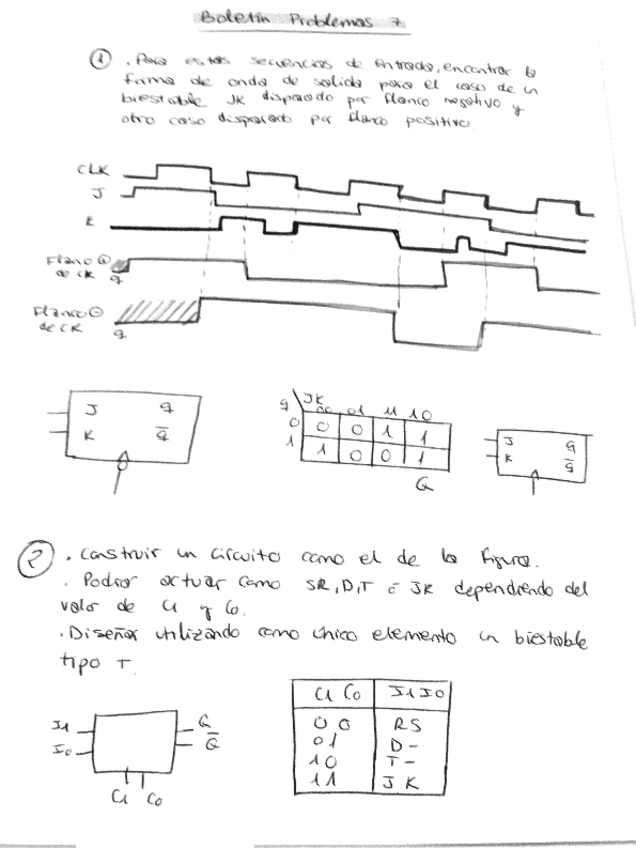 Boletín Problemas 7
① . Para estas secuencias de entrada, encontrar la
forma de onda de salida para el caso de un
biestable JK disparado por flanco negativo y
otro caso disparado por flanco positivo.
CLK
J
K
Flanco ⊕
de CK
q
Flanco ⊖
de CK
q
J q
K q̅
q JK
00 01 11 10
0 0 0 1 1
1 1 0 0 1
Q
J Q
K Q̅
② . Construir un circuito como el de la figura.
. Podrá actuar como SR, D, T ó JK dependiendo del
valor de C1 y C0.
. Diseñar utilizando como único elemento un biestable
tipo T.
I1
I0
Q
Q̅
C1 C0
C1 C0 I1 I0
0 0 RS
0 1 D -
1 0 T -
1 1 J K